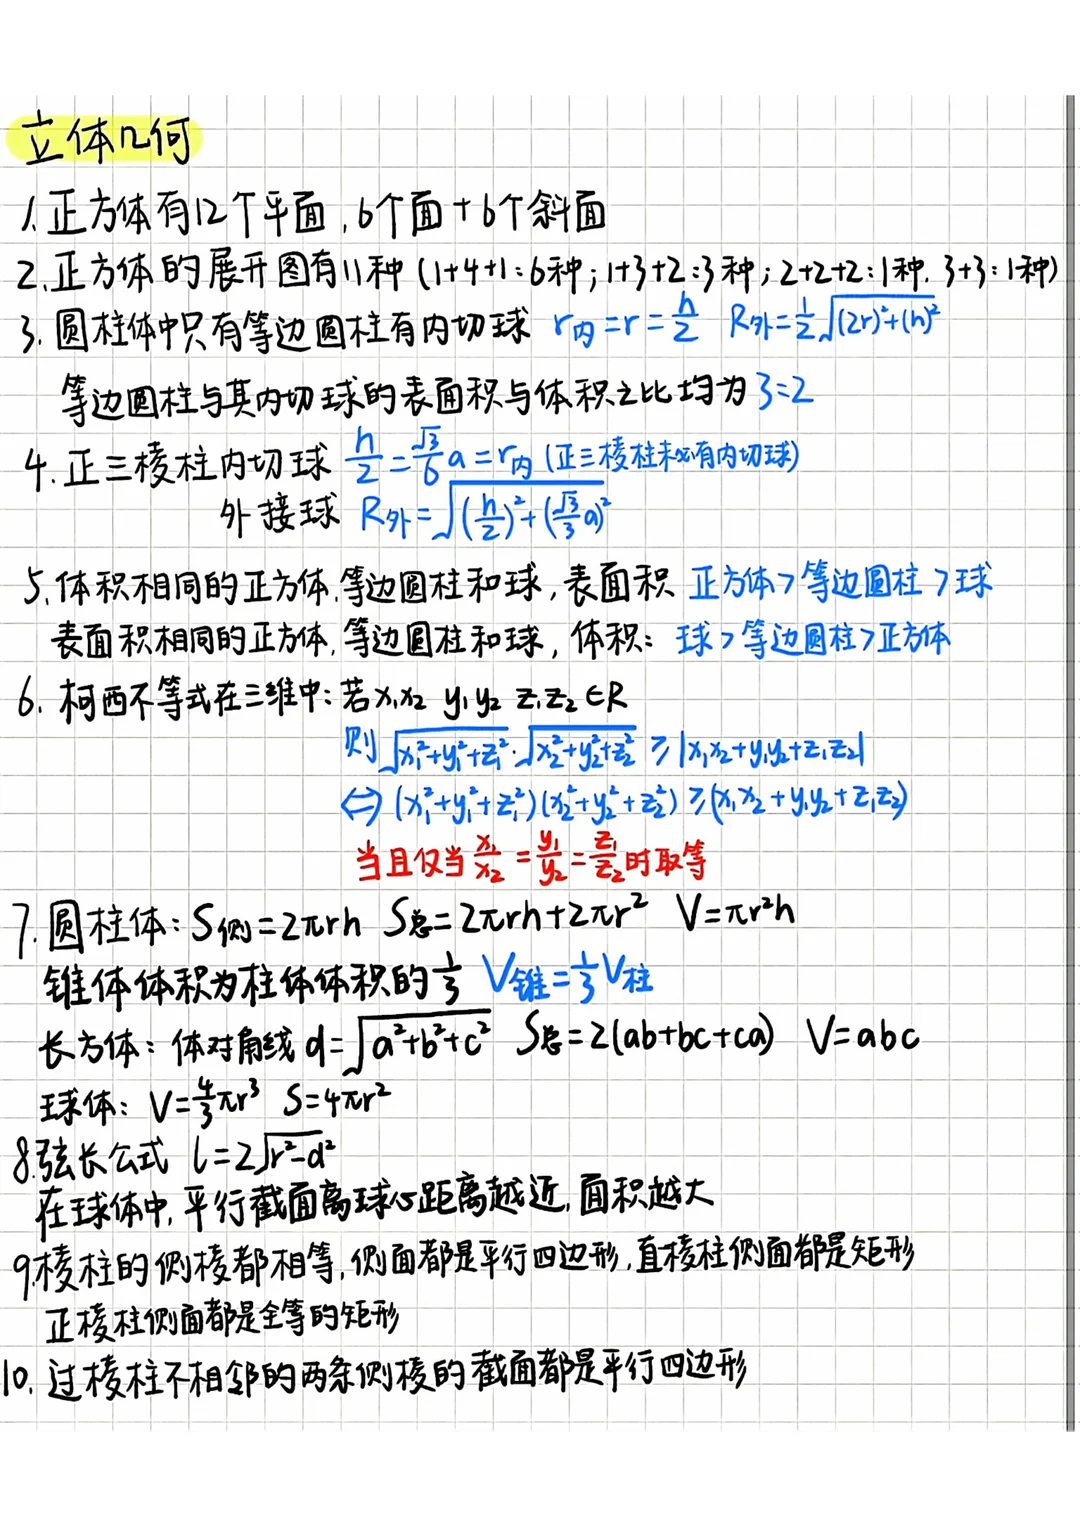 立体几何
1.正方体有12个平面,6个面+6个斜面
2.正方体的展开图有11种(1+4+1:6种;1+3+2:3种;2+2+2:1种.3+3:1种)
3.圆柱体中只有等边圆柱有内切球 r内=r=h/2 R外=1/2√((2r)²+(h)²)
等边圆柱与其内切球的表面积与体积之比均为3=2
4.正三棱柱内切球 h/2=√3/6 a=r内(正三棱柱未必有内切球)
外接球 R外=√((h/2)²+(√3/3 a)²)
5.体积相同的正方体.等边圆柱和球,表面积 正方体>等边圆柱>球
表面积相同的正方体,等边圆柱和球,体积: 球>等边圆柱>正方体
6.柯西不等式在三维中:若x₁x₂ y₁y₂ z₁z₂∈R
则√(x₁²+y₁²+z₁²)·√(x₂²+y₂²+z₂²) ≥|x₁x₂+y₁y₂+z₁z₂|
⇔(x₁²+y₁²+z₁²)(x₂²+y₂²+z₂²)≥(x₁x₂+y₁y₂+z₁z₂)
当且仅当x₁/x₂=y₁/y₂=z₁/z₂时取等
7.圆柱体:S侧=2πrh S总=2πrh+2πr² V=πr²h
锥体体积为柱体体积的1/3 V锥=1/3V柱
长方体:体对角线d=√(a²+b²+c²) S总=2(ab+bc+ca) V=abc
球体:V=4/3πr³ S=4πr²
8.弦长公式 l=2√(r²-d²)
在球体中,平行截面离球心距离越近,面积越大
9棱柱的侧棱都相等,侧面都是平行四边形,直棱柱侧面都是矩形
正棱柱侧面都是全等的矩形
10.过棱柱不相邻的两条侧棱的截面都是平行四边形